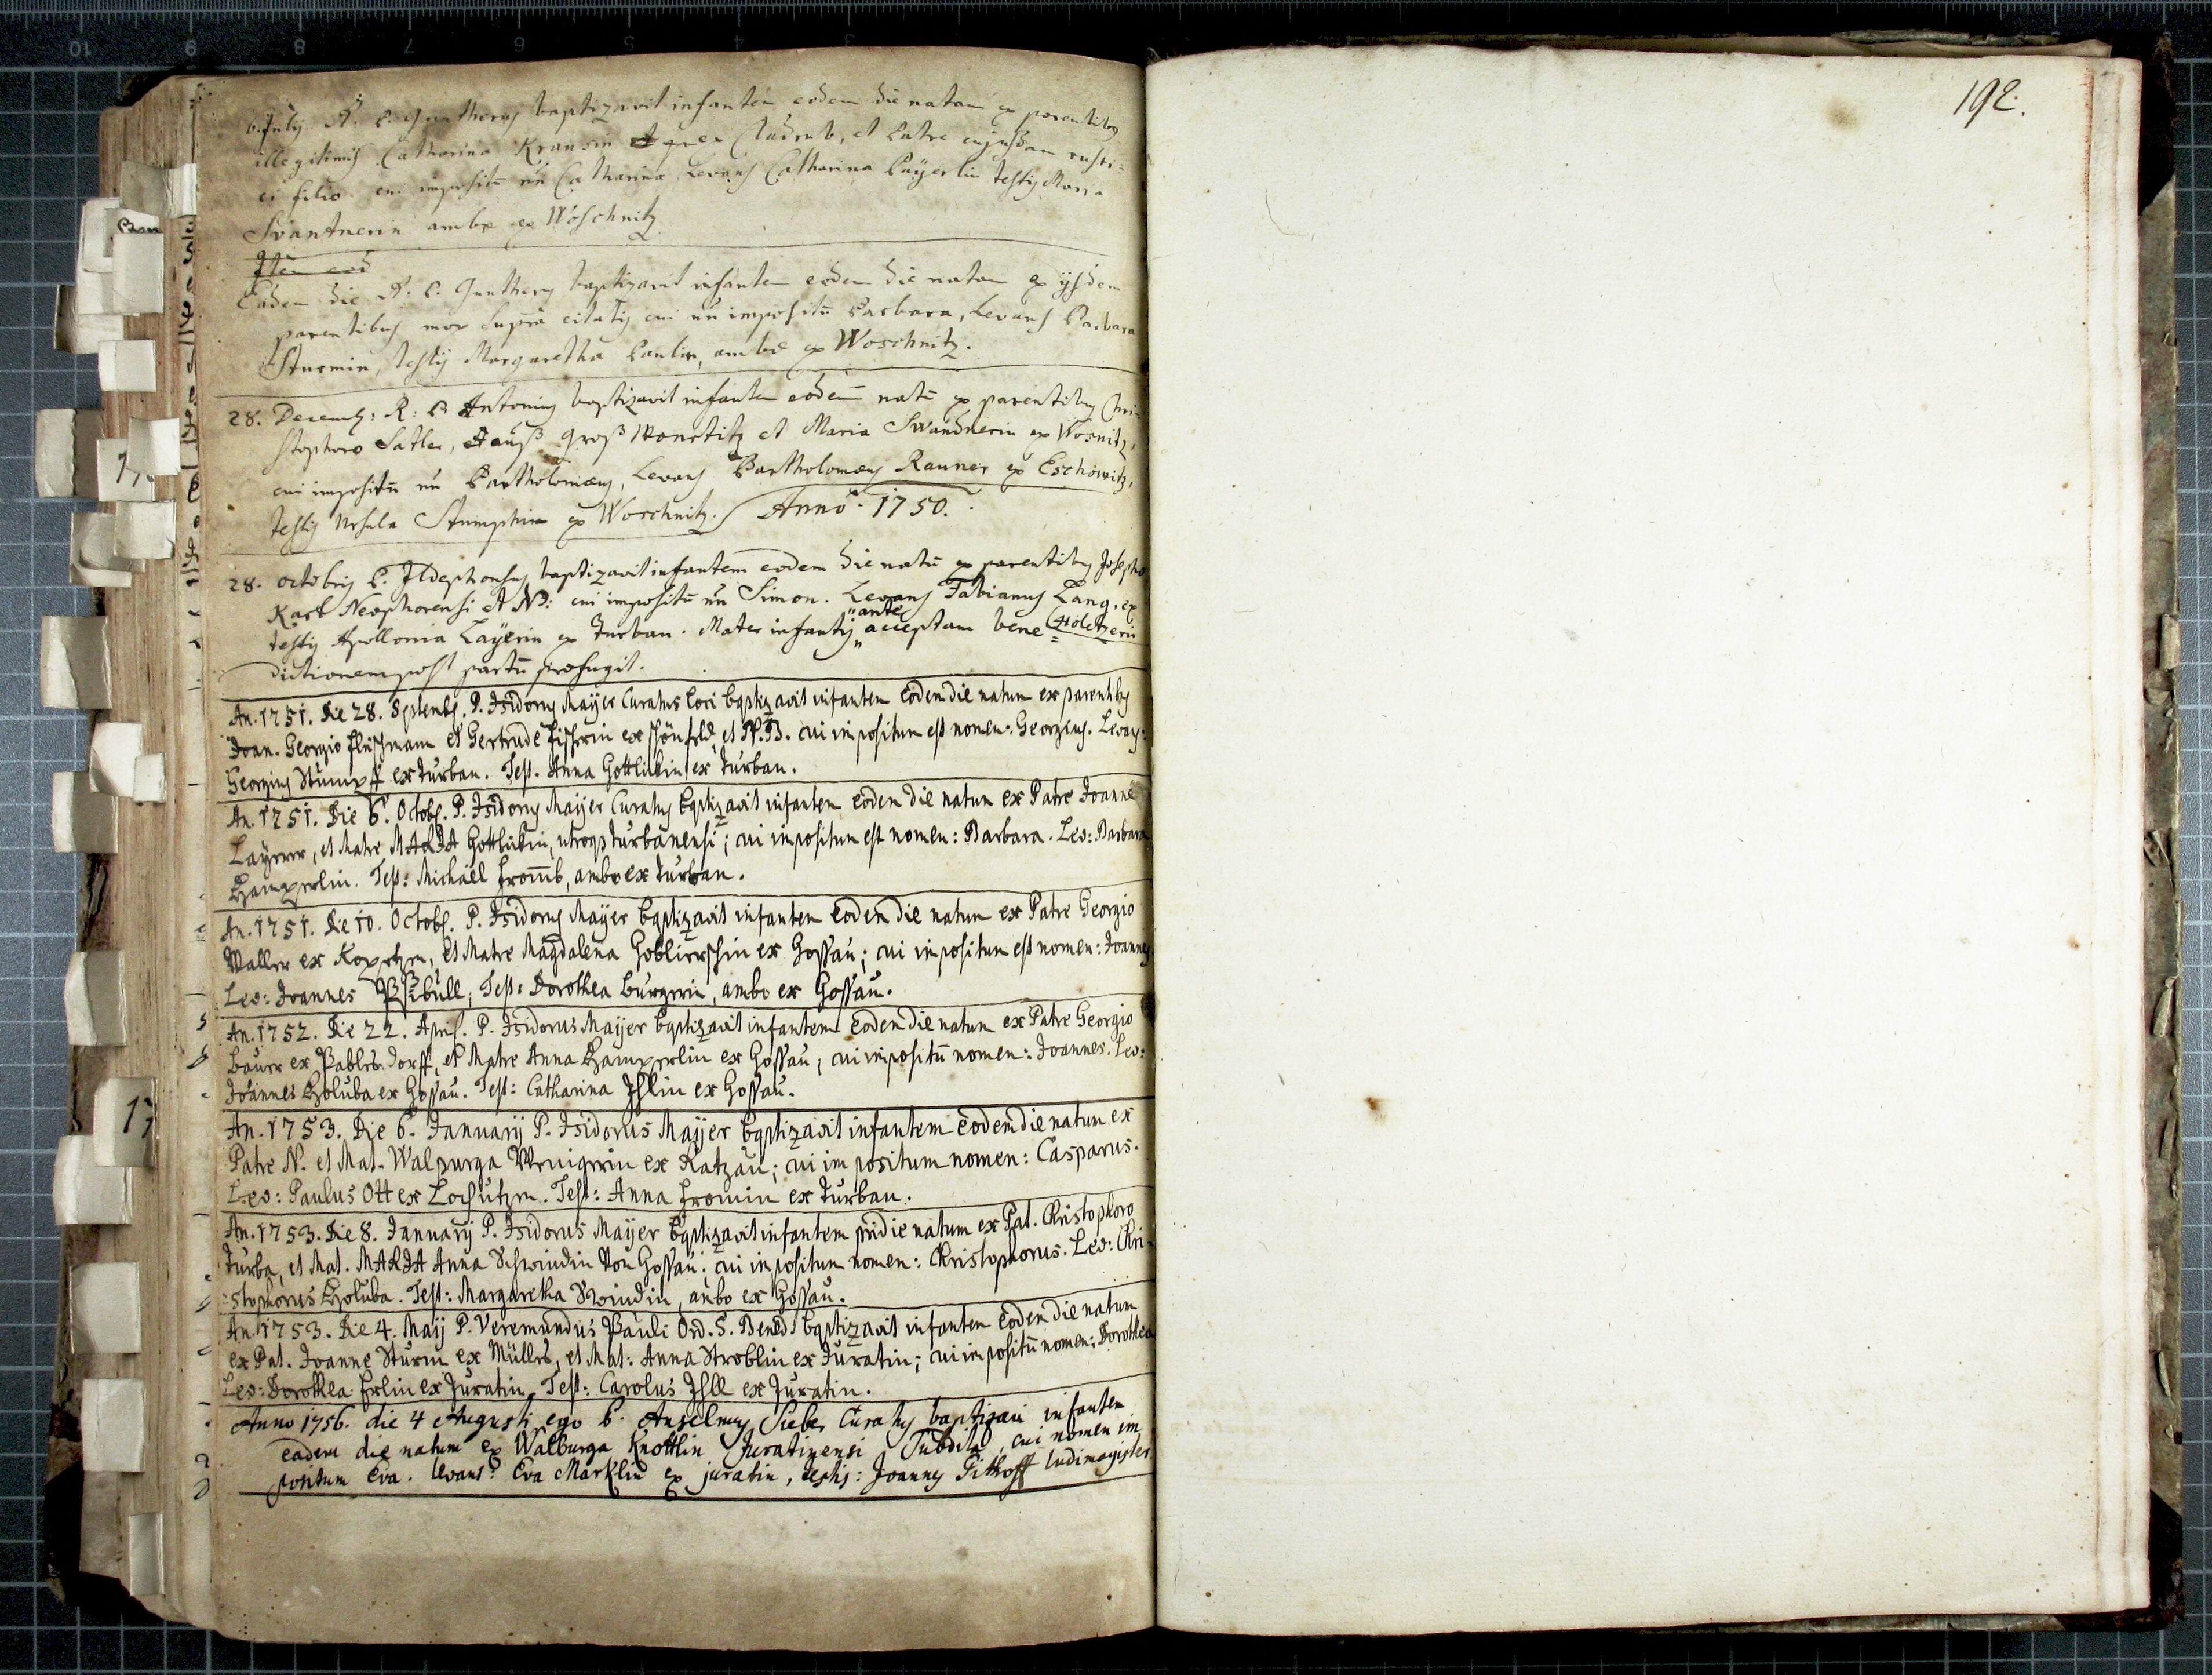 192.
6. July R. P. Guntherus baptizavit infantem eodem die natam ex parentibus
illegitimis Catharina Krausin ex Cladrub, et Patre cujusdam rusti=
ci filio. cui impositū nn Catharina Levans Catharina Payerlin testis Maria
Svantnerin ambæ ex Woschnitz
Item eod
Eadem die R. P. Guntherus baptizavit infantem eodem die natam ex ijsdem
parentibus mox supra citatis cui nn impositū Barbara, Levans Barbara
Sturmin, testis Margaretha Paulin, ambæ ex Woschnitz.
28. Decemb: R: P Antonius baptizavit infantem eodem natū ex parentibus Chri=
stophoro Satler, auß Groß Wonetitz et Maria Swandnerin ex Wosnitz,
cui impositū nn Bartholomæus, Levans Bartholomæus Rauner ex Eschowitz,
testis Ursula Stumphin ex Woschnitz. Anno 1750.
28. octobris P. Ildephonsus baptizavit infantem eodem die natū ex parentibus Josepho
Karl Neophorensi et N: cui impositū nn Simon. Levans Fabianus Lang, ex
testis Apollonia Layerin ex Turban. Mater infantis ante acceptam bene= Holetzerin
dictionem post partū profugit.
An. 1751. Die 28. Septemb. P. Isidorus Mayer Curatus loci baptizavit infantem eodem die natum ex parentibus
Joan. Georgio fleischmam et Gertrude fischerin ex schönfeld, et N.B. cui impositum est nomen: Georgius. Levans:
Georgius Stumpff ex Turban. Test. Anna Gottlickin ex Turban.
An. 1751. Die 6. Octob. P. Isidorus Mayer Curatus baptizavit infantem eodem die natum ex Patre Joanne
Layerer, et Matre MARIA Gottlickin, utroqs Turbanensi; cui impositum est nomen: Barbara. Lev: Barbara
Hamperlin. Test: Michaël Fromb, ambo ex Turban.
An. 1751. Die 10. Octob. P. Isidorus Mayer baptizavit infantem eodem die natum ex Patre Georgio
Waller ex Kopetzen, et Matre Magdalena Goblierschin ex Gossau; cui impositum est nomen: Joannes
Lev: Joannes Pschibull, Test: Dorothea Burgerin, ambo ex Gossau.
An. 1752. Die 22. April. P. Isidorus Mayer baptizavit infantem eodem die natum ex Patre Georgio
Bauer ex Pablesdorff, et Matre Anna Hamperlin ex Gossau, cui impositū nomen: Joannes. Lev:
Joannes Holuba ex Gossau. Test: Catharina Ihlin ex Gossau.
An. 1753. Die 6. January P. Isidorus Mayer baptizavit infantem eodem die natum ex
Patre N. et Mat. Walpurga Wenigerin ex Katzau; cui impositum nomen: Casparus.
Lev: Paulus Ott ex Lochutzen. Test: Anna Fromin ex Turban.
An. 1753. Die 8. January P. Isidorus Mayer baptizavit infantem pridie natum ex Pat. Christophoro
Turba, et Mat. MARIA Anna Schwindin Von Gossau: cui impositum nomen: Christophorus. Lev: Chri=
=stophorus Holuba. Test: Margaretha Swindin, ambo ex Gossau.
An. 1753. Die 4. Maij P. Veremundus Pauli Ord. S. Bened. baptizavit infantem eodem die natum
ex Pat. Joanne Sturm ex Mülles, et Mat: Anna Stroblin ex Juratin; cui impositū nomen: Dorothea
Lev: Dorothea Erlin ex Juratin. Test: Carolus Ihll ex Juratin.
Anno 1756. die 4 Augusti ego P. Anselmus Sieber Curatus baptizavi infantem
eadem die natum ex Walburga Knottlin Juratinensi Subdita, cui nomen im
positum Eva. levans: Eva Marklin ex juratin, testis: Joannes Pithoff ludimagister.